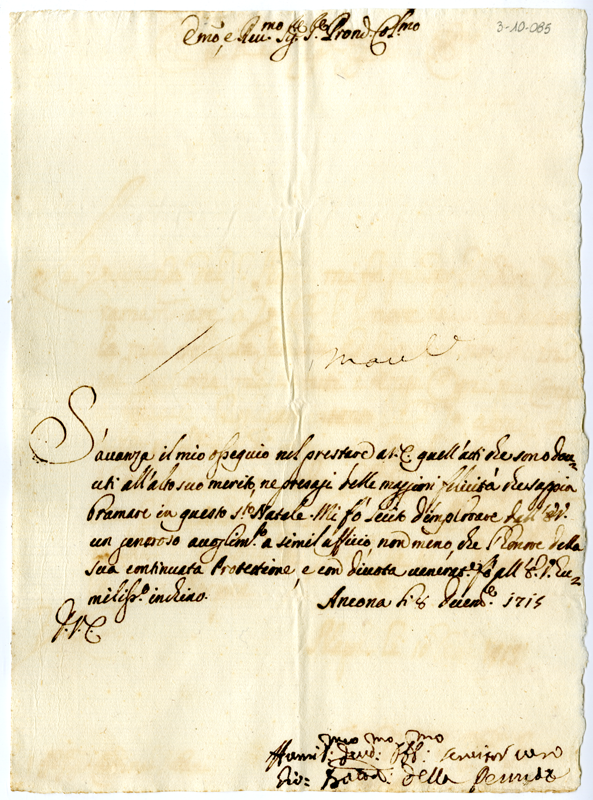 Em͞o, e Reu.mo Sig.re P.re Prond. Col.mo
3-10-085
S'auanza il mio osseguio nel prestare a V. E. quell'atti che sono dou=
uti all'alto suo merito, ne presagi delle maggiori felicità che sappia
bramare in questo S.to Natale. Mi fò lecito d'implorare dall' E. V.
un generoso accoglim.to a simil'uffició, non meno, che l'honore della
sua continuata Protettione, e con diuota ueneraz.e fò all' E. V. hu=
miliss.o inchino.
Ancona li 8 Decem.e 1715
D. V. E.
Humil.mo Deud.mo Obl.mo seruitor uero
Gio: Batt.a della